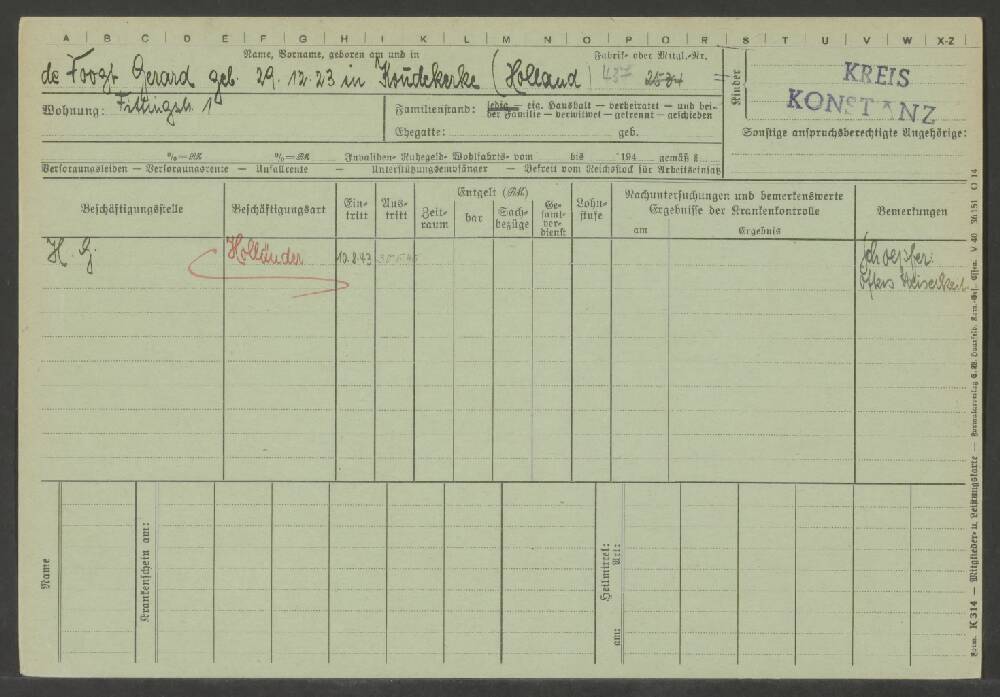 A B C D E F G H I K L M N O P Q R S T U V W X-Z
Name, Vorname, geboren am und in
Fabrik- oder Mitgl.-Nr.
de Foogt Gerard geb. 29.12.23 in Koudekerke (Holland 437 2534
Kinder
KREIS
KONSTANZ
Wohnung: Fittingstr. 1
Familienstand: ledig — eig. Haushalt — verheiratet — und bei-
der Familie — verwitwet — getrennt — geschieden
Ehegatte: geb.
Sonstige anspruchsberechtigte Angehörige:
%=RM %=RM Invaliden- Ruhegeld- Wohlfahrts- vom bis 194 gemäß §
Versorgungsleiden — Versorgungsrente — Unfallrente — Unterstützungsempfänger — Befreit vom Reichsstock für Arbeitseinsatz
Beschäftigungsstelle
Beschäftigungsart
Ein-
tritt
Aus-
tritt
Entgelt (RM)
Zeit-
raum
bar
Sach-
bezüge
Ge-
samt-
ver-
dienst
Lohn-
stufe
Nachuntersuchungen und bemerkenswerte
Ergebnisse der Krankenkontrolle
am Ergebnis
Bemerkungen
H. G. Holländer 10.8.43
Name
Krankenschein am:
Heilmittel:
Art:
am:
Form. K 314 — Mitglieder- u. Leistungskarte — Formularverlag C. W. Haarfeld, Kom.-Ges., Essen. V 40 36 151 O 14